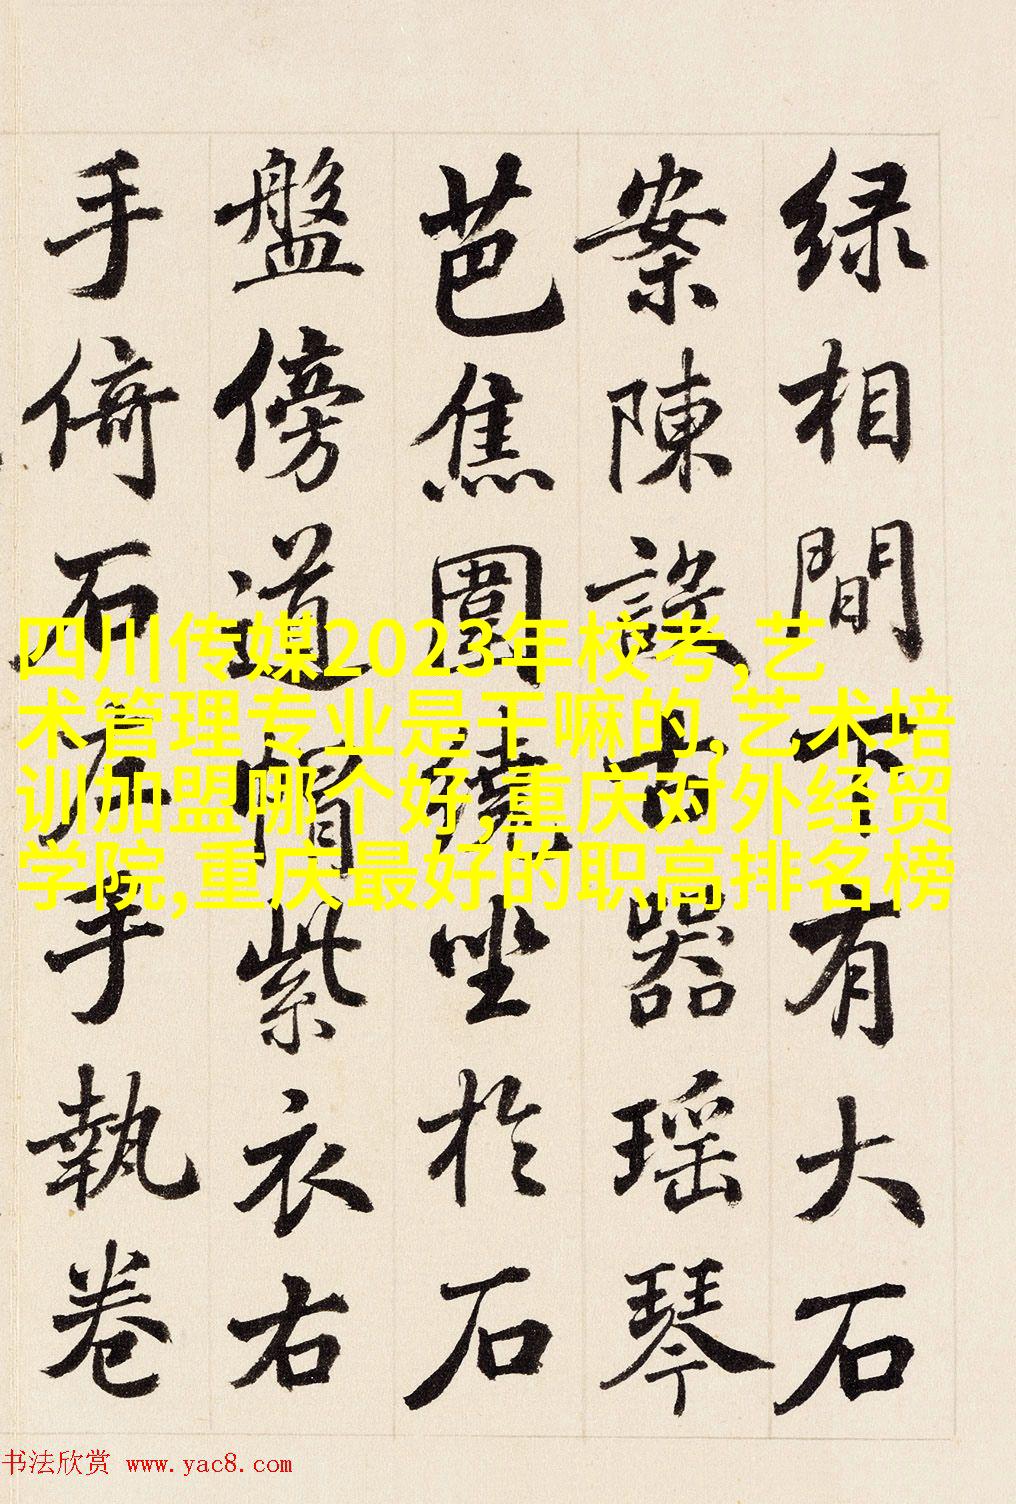 绿相間下有大石
案陳設古器瑶琴
芭焦圍繞坐於石
盤傍道帽紫衣右
手倚石左手執卷
四川传媒2023年校考,艺
术管理专业是干嘛的,艺术培
训加盟哪个好,重庆对外经贸
学院,重庆最好的职高排名榜
书法欣赏 www.yac8.com